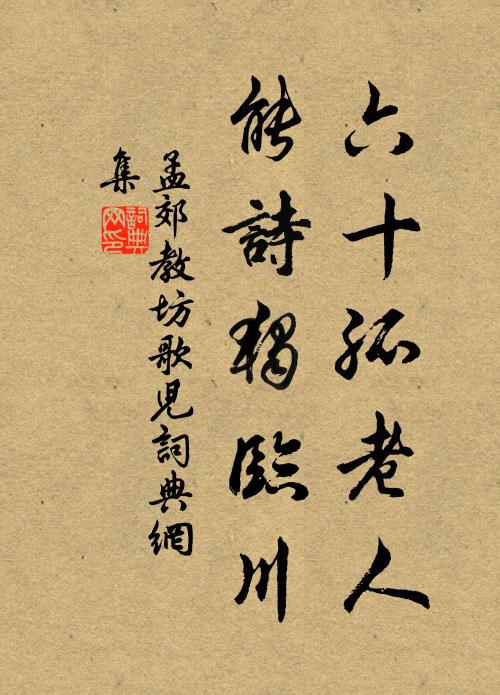 六十孤老人
能詩獨臨川
孟郊教坊歌兒詞典網
集
詞典
網印